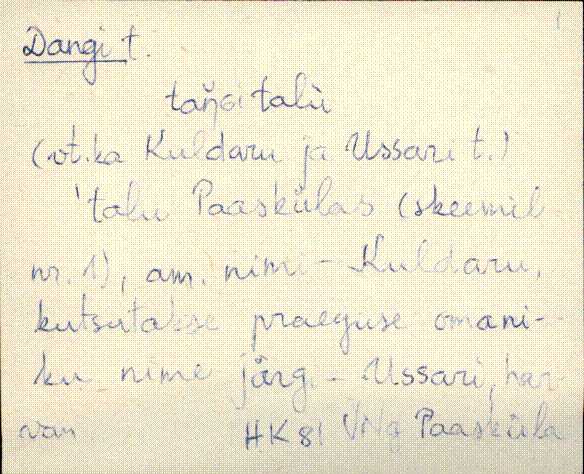 Dangi t.
taŋ̆Gi talù
(vt. ka Kuldaru ja Ussari t.)
'talu Paasküla (skeemil
nr. 1), am. nimi - Kuldaru,
kutsutakse praeguse omani-
ku nime järg. - Ussari, har-
vem
HK 81 VNg Paasküla